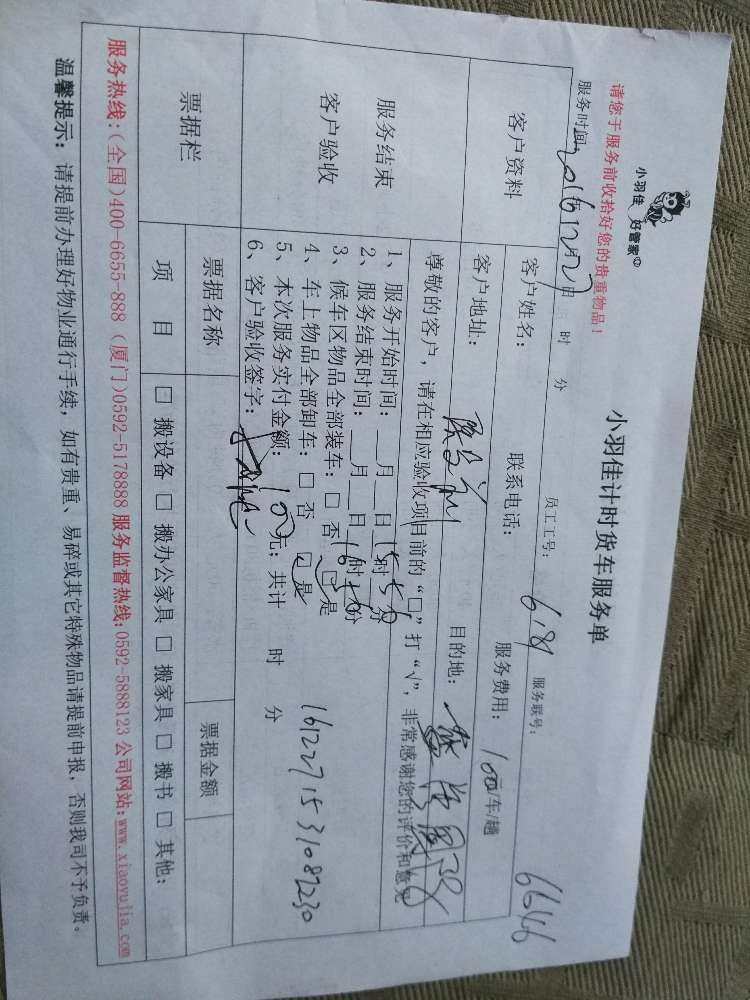 小羽佳 好管家
小羽佳计时货车服务单
请您于服务前收拾好您的贵重物品！
员工工号： 服务联号： 6646
服务时间 2016年12月27日 时 分
客户资料
客户姓名： 联系电话： 服务费用： 100/车/趟
客户地址： 目的地：
服务结束
客户验收
尊敬的客户，请在相应验收项目前的“□”打“√”，非常感谢您的评价和意见
1、服务开始时间：__月__日15时 分
2、服务结束时间：__月__日16时 分
3、候车区物品全部装车：□ 否 □ 是
4、车上物品全部卸车：□ 否 □ 是
5、本次服务实付金额：100元；共计 时 分
6、客户验收签字：
161227153108230
票据栏
票据名称 票据金额
项 目 □ 搬设备 □ 搬办公家具 □ 搬家具 □ 搬书 □ 其他：
服务热线：（全国）400-6655-888（厦门）0592-5178888 服务监督热线：0592-5888123 公司网站：www.xiaoyujia.com
温馨提示：请提前办理好物业通行手续，如有贵重、易碎或其它特殊物品请提前申报，否则我司不予负责。